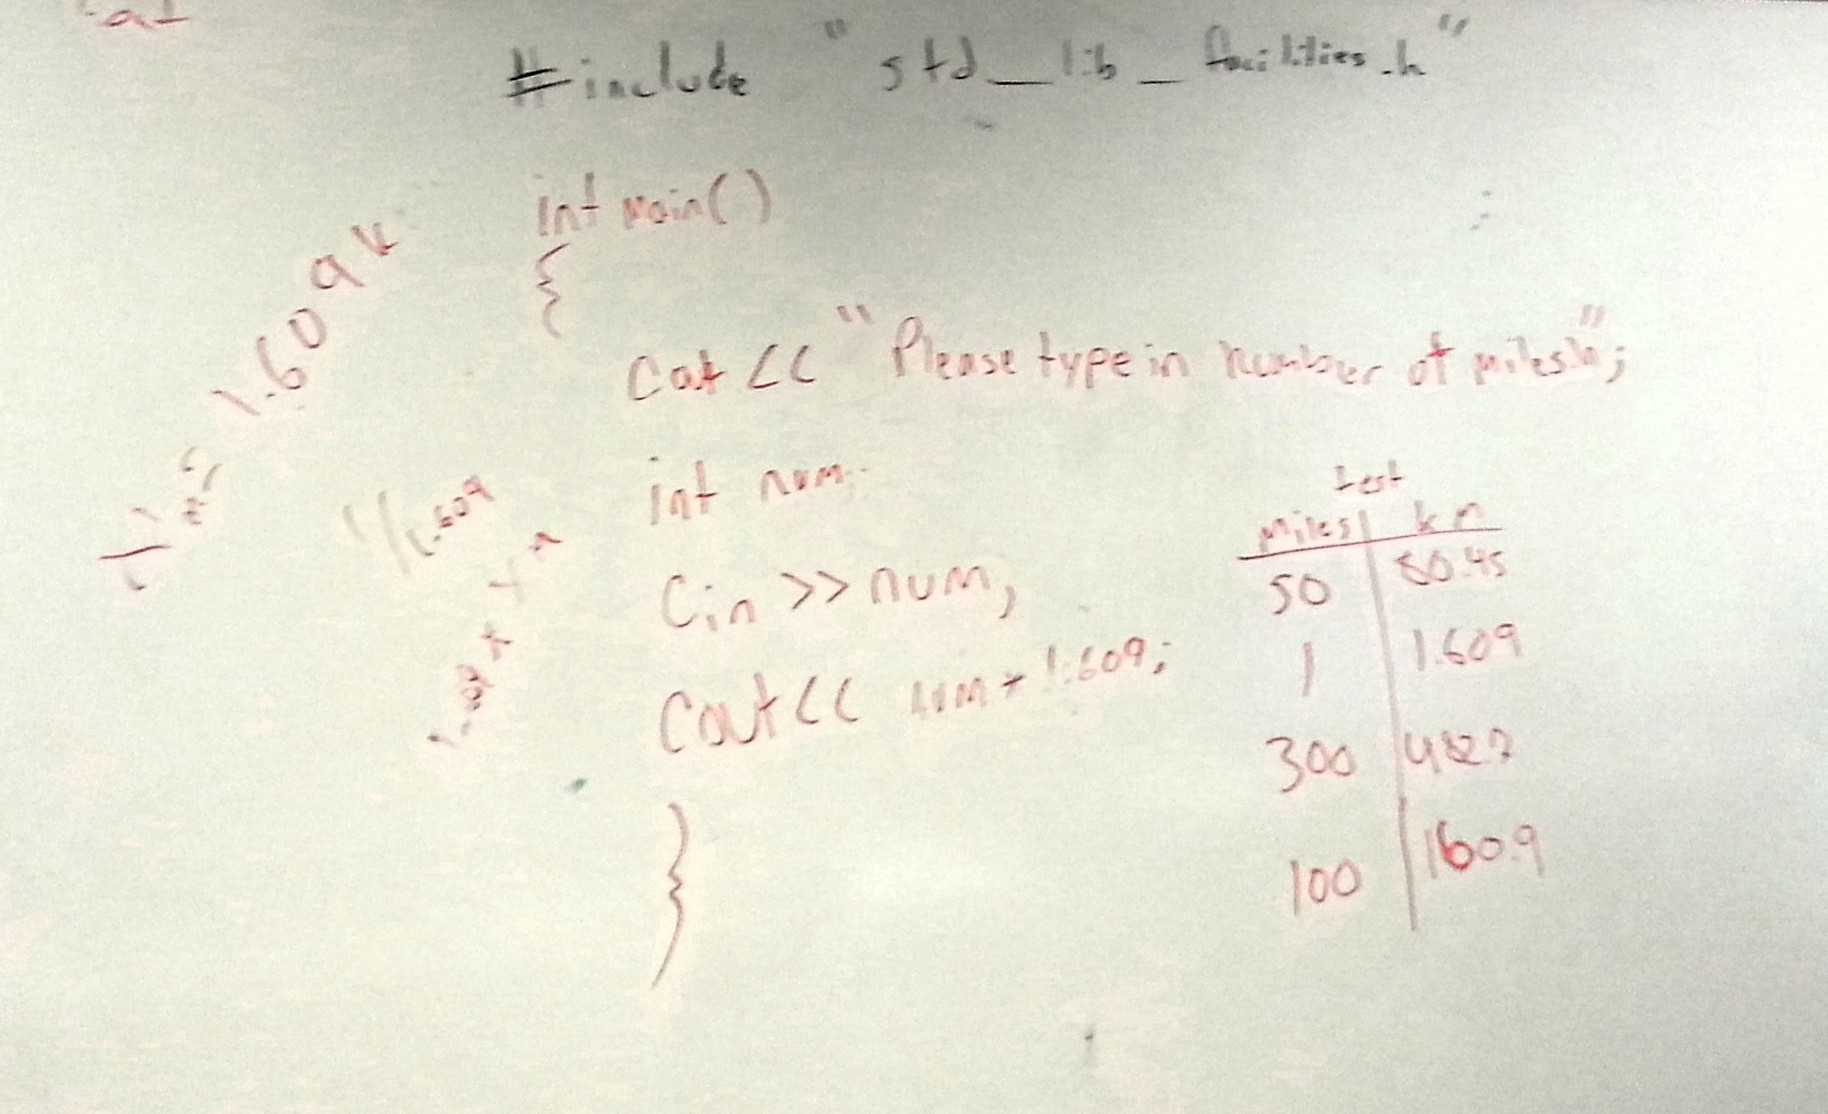 #include "std_lib_facilities.h"
int main()
{
cout << "Please type in number of miles\n";
int num;
cin >> num;
cout << num * 1.609;
}
1.609 k
1/1.609
test
miles | km
50 | 80.45
1 | 1.609
300 | 482.7
100 | 160.9